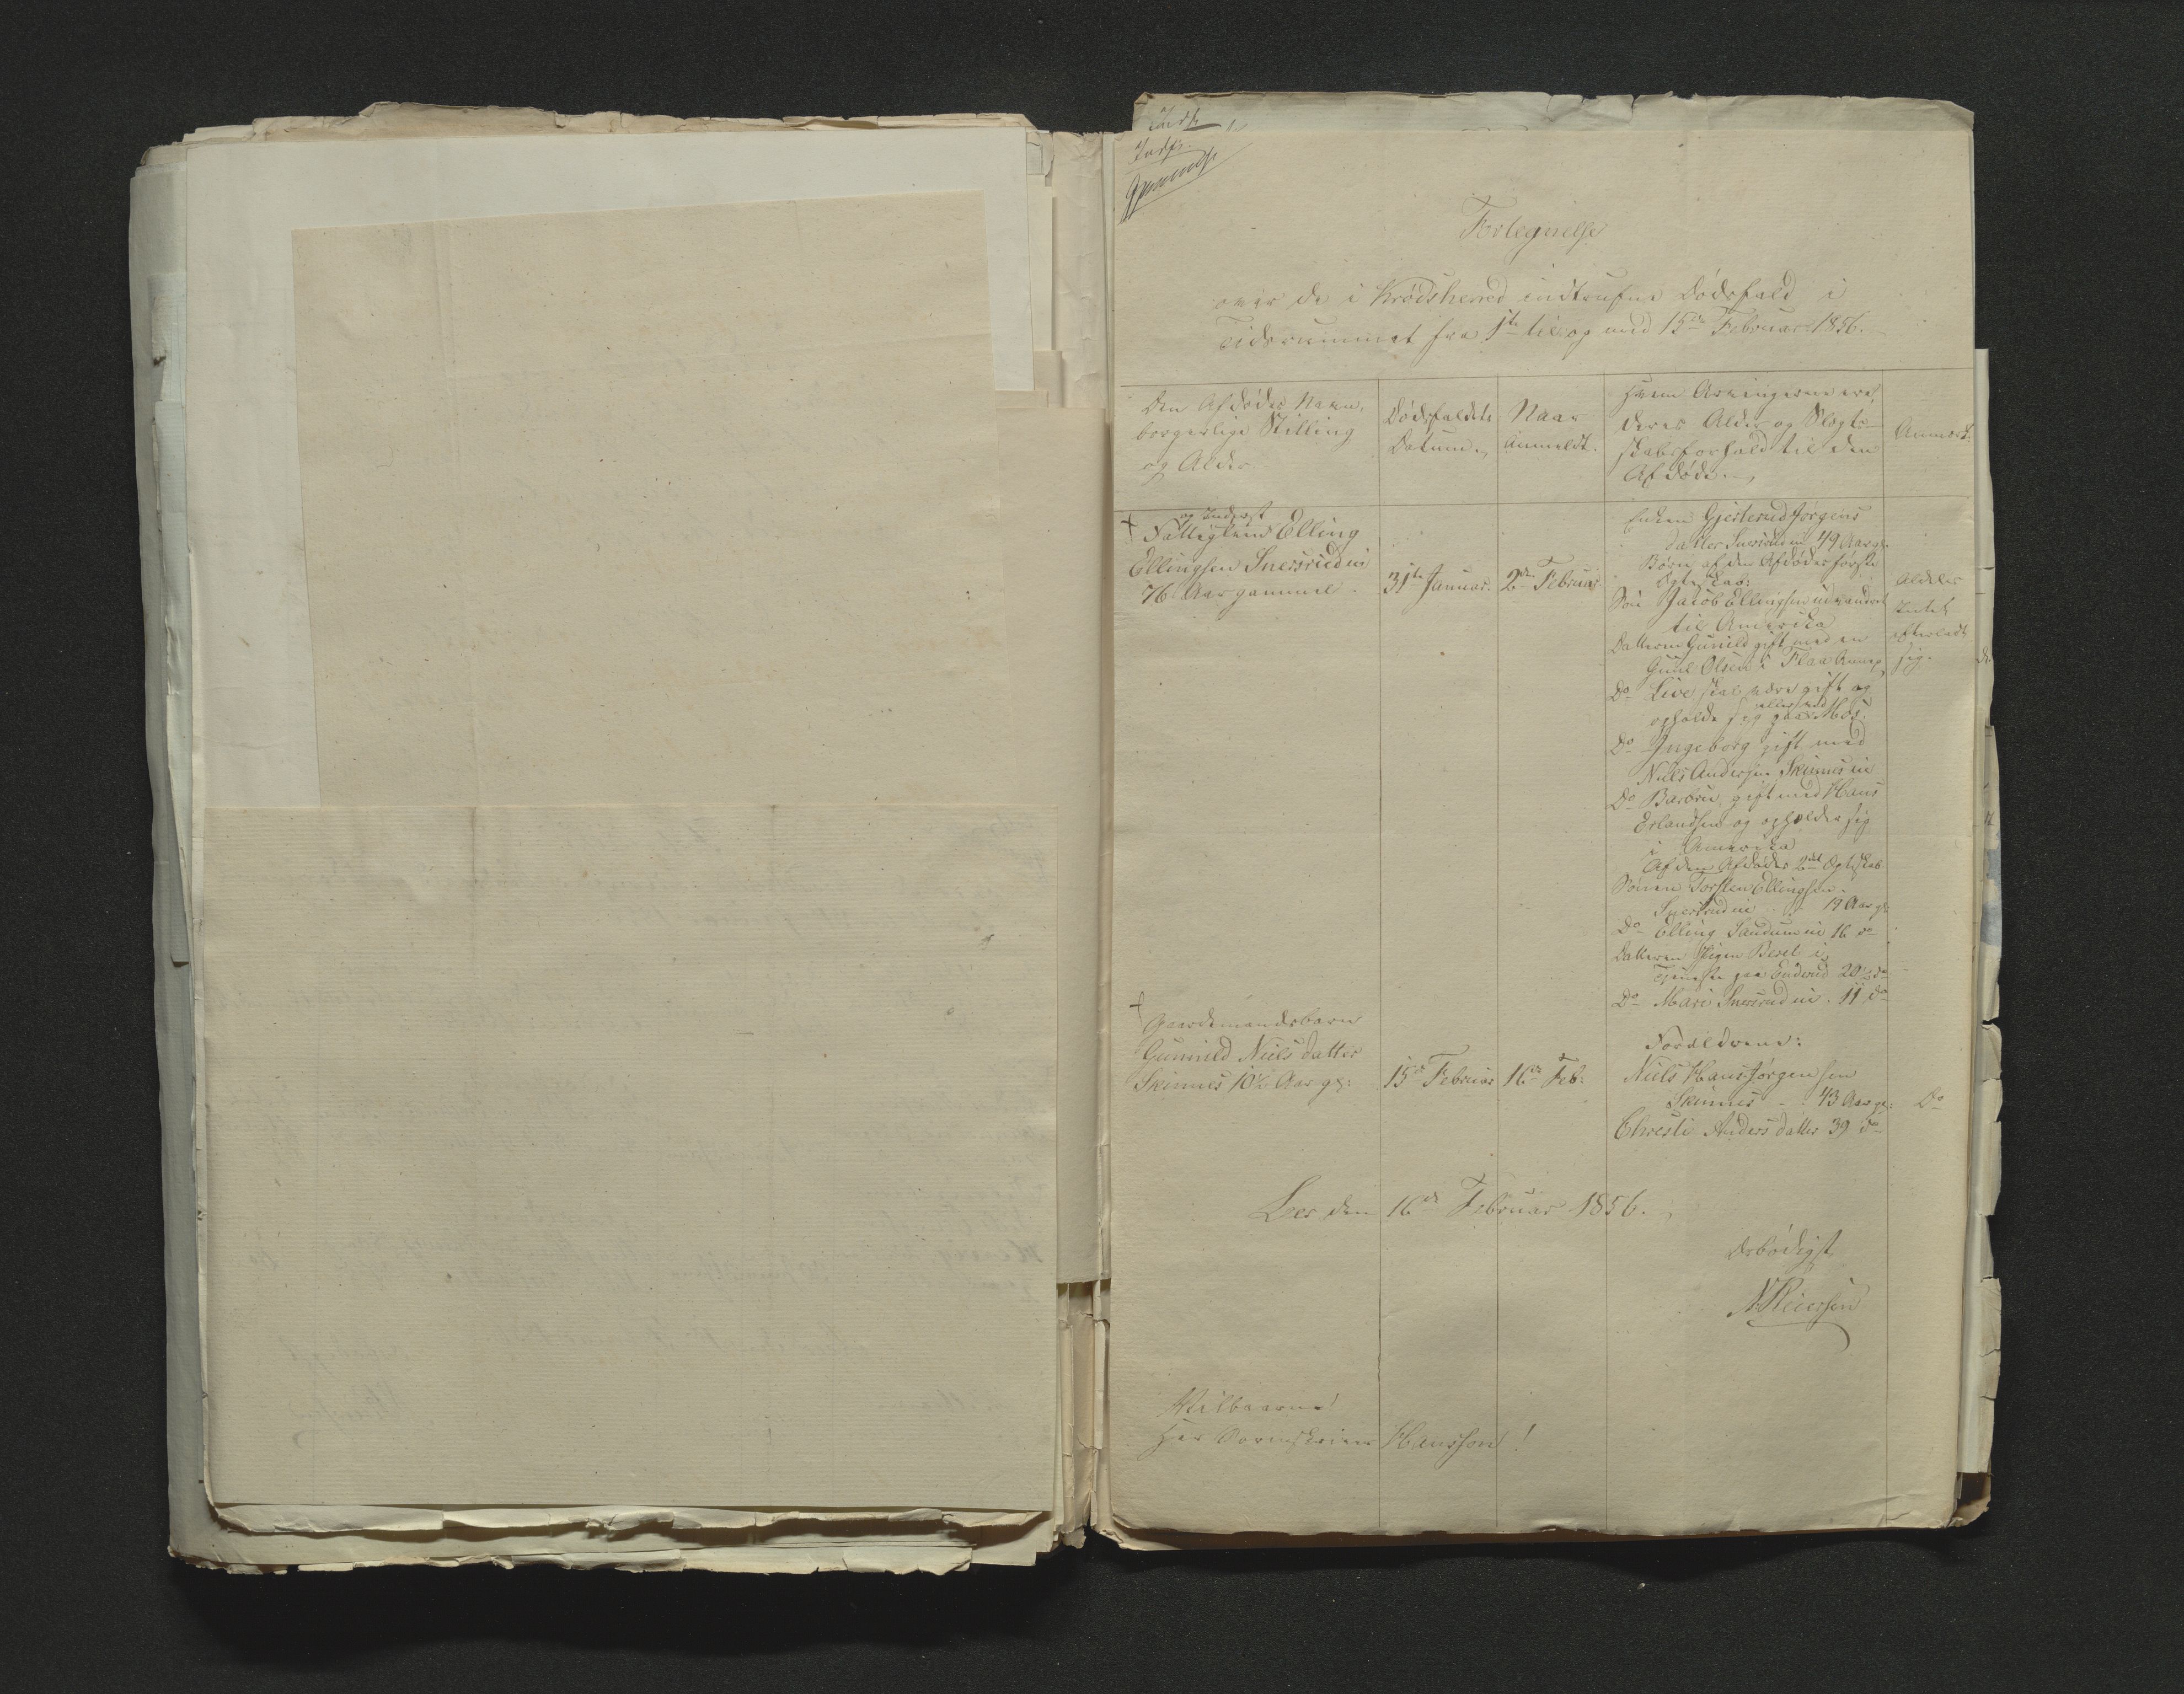 Indf.
Indf.
Fortegnelse
over de i Krødsherred indtrufne Dødsfald i
Tidsrummet fra 1ste til og med 15de Februar 1856.
Den Afdødes Navn,
borgerlige Stilling
og Alder
Dødsfaldets
Datum.
Naar
anmeldt.
Hvem Arvingerne ere,
deres Alder og Slægt-
skabsforhold til den
Afdøde.
Anmærk.
† og Inderst
Fattiglem Elling
Ellingsen Snersrud ei
76 Aar gammel.
31te Januar.
2den Februar
Enken Gjertrud Jørgens
datter Snersrud ei 49 Aar gl.
Børn af den Afdødes første
Ægteskab:
Søn Jacob Ellingsen udvandret
til Amerika
Datteren Gunild gift med en
Guul Olsen i Flaa Annex
Do Live skal være gift og
opholde sig paa eller ved Mos.
Do Ingeborg gift med
Niels Andersen Skinnes ei
Do Barbru, gift med Hans
Erlandsen og opholder sig
i Amerika
Af den Afdødes 2det Ægteskab
Sønnen Torsten Ellingsen
Snersrud ei 19 Aar gl.
Do Elling Sandum ei 16 do
Datteren Pigen Berit i
Tjeneste paa Enderud 20 do
Do Mari Snersrud ei 11 do
Aldeles
Intet
efterladt
sig.
†
Gaardmandsbarn
Gunnild Niels datter
Skinnes 10½ Aar gl:
15de Februar
16de Feb:
Forældrene:
Niels Hans Jørgensen
Skinnes - 43 Aar gl:
Christi Anders datter 39 do
Do
Lee den 16de Februar 1856.
Ærbødigst
N Reiersen
Velbaarne
Herr Sorenskriver Hansson!